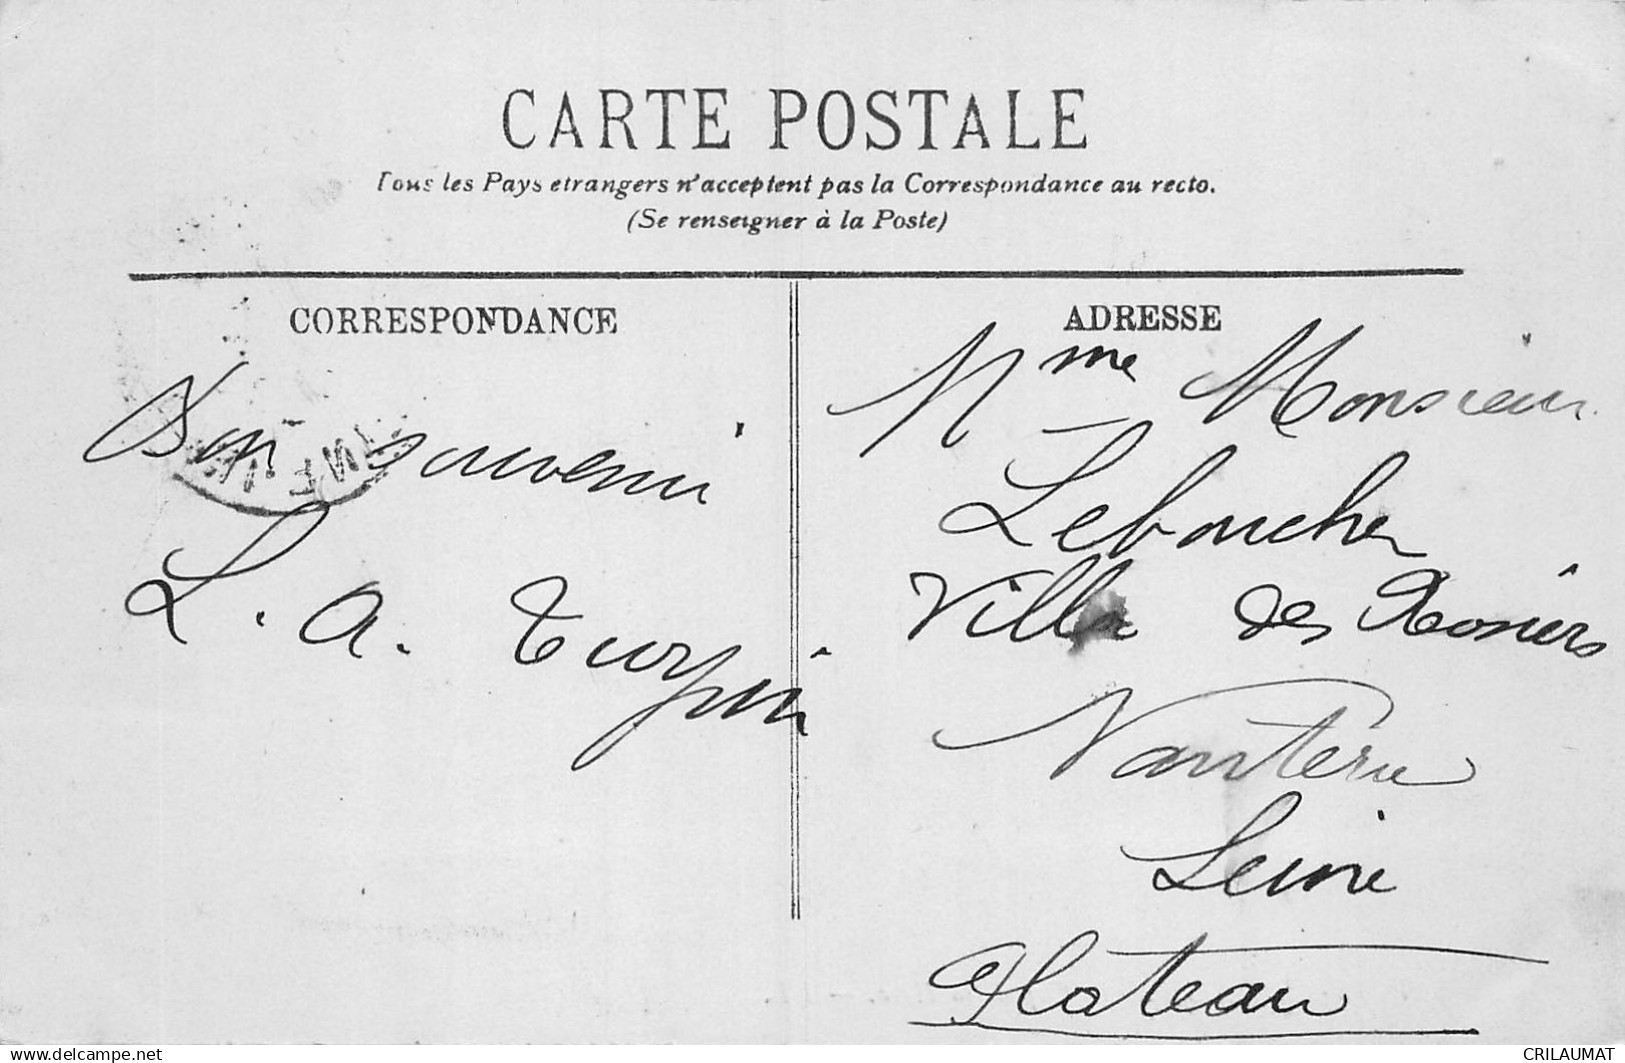 CARTE POSTALE
Tous les Pays étrangers n'acceptent pas la Correspondance au recto.
(Se renseigner à la Poste)
CORRESPONDANCE
Bon souvenir
L. A. Turpin
ADRESSE
Mme Monsieur
Leboucher
Villa des Rosiers
Nanterre
Seine
Plateau
delcampe.net
CRILAUMAT